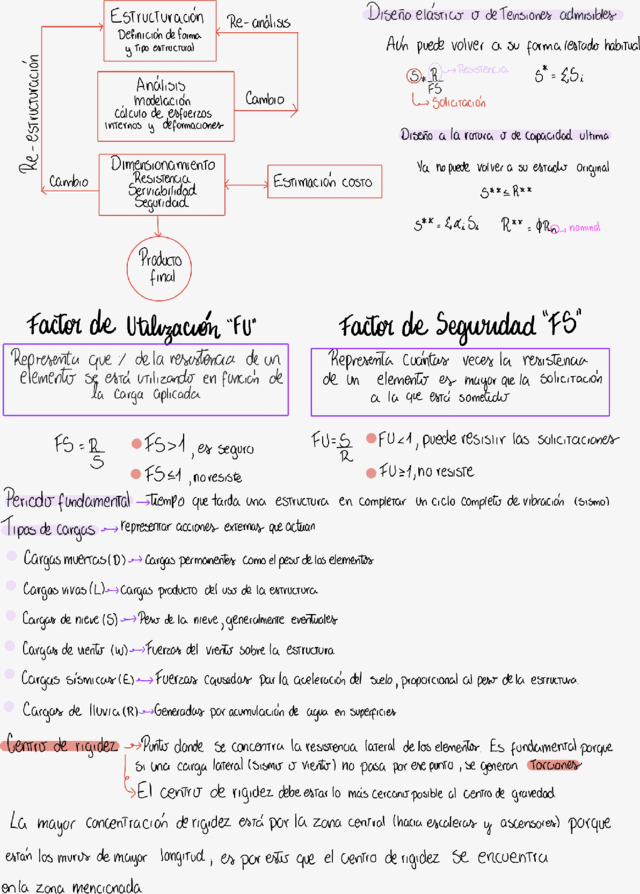 Estructuración
Definición de forma
y tipo estructural
Re-análisis
Análisis
Modelación
Cálculo de esfuerzos
internos y deformaciones
Cambio
Re-estructuración
Dimensionamiento
Resistencia
Serviabilidad
Seguridad
Cambio
Estimación costo
Producto
final
Diseño elástico o de Tensiones admisibles
Aún puede volver a su forma/estado habitual
S* R → Resistencia
FS
S* = ΣSi
→ Solicitación
Diseño a la rotura o de capacidad ultima
Ya no puede volver a su estado original
S** ≤ R**
S** = Σαi Si R** = ϕRn → nominal
Factor de Utilización "FU"
Representa que % de la resistencia de un
elemento se está utilizando en función de
la carga aplicada
FS = R/S
FS>1, es seguro
FS≤1, no resiste
Factor de Seguridad "FS"
Representa cuántas veces la resistencia
de un elemento es mayor que la solicitación
a la que está sometido
FU = S/R
FU<1, puede resistir las solicitaciones
FU≥1, no resiste
Periodo fundamental → Tiempo que tarda una estructura en completar un ciclo completo de vibración (sismo)
Tipos de cargas → representar acciones externas que actúan
Cargas muertas (D) → Cargas permanentes como el peso de los elementos
Cargas vivas (L) → Cargas producto del uso de la estructura
Cargas de nieve (S) → Peso de la nieve, generalmente eventuales
Cargas de viento (W) → Fuerzas del viento sobre la estructura
Cargas sísmicas (E) → Fuerzas causadas por la aceleración del suelo, proporcional al peso de la estructura.
Cargas de lluvia (R) → Generadas por acumulación de agua en superficies
Centro de rigidez → Punto donde se concentra la resistencia lateral de los elementos. Es fundamental porque
si una carga lateral (sismo o viento) no pasa por ese punto, se generan Torciones
→ El centro de rigidez debe estar lo más cercano posible al centro de gravedad
La mayor concentración de rigidez está por la zona central (hacia escaleras y ascensores) porque
están los muros de mayor longitud, es por esto que el centro de rigidez se encuentra
en la zona mencionada